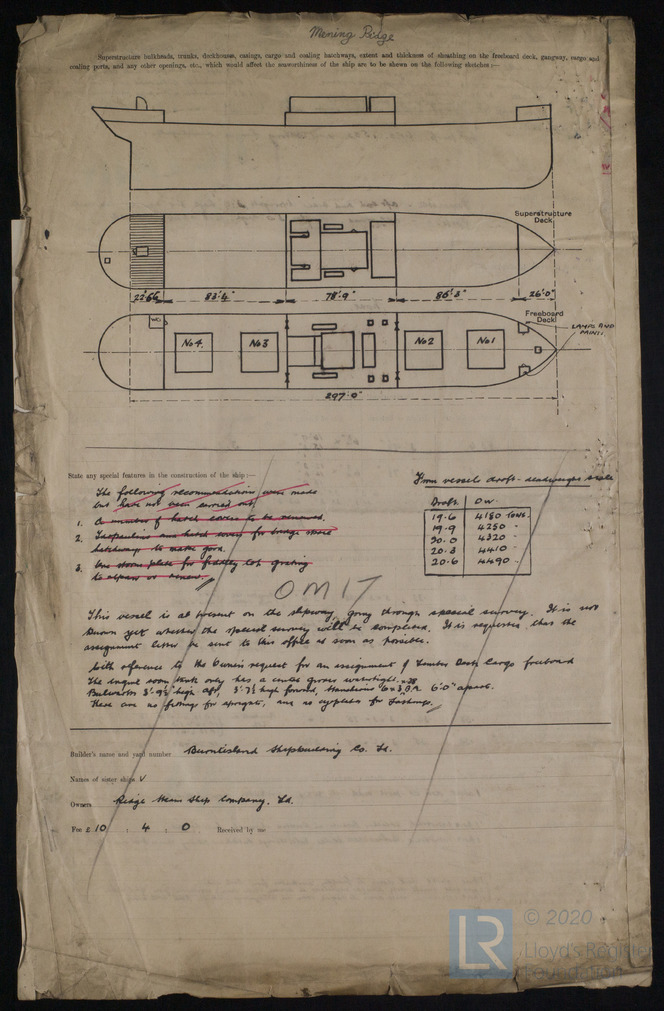 Mening Ridge
Superstructure bulkheads, trunks, deckhouses, casings, cargo and coaling hatchways, extent and thickness of sheathing on the freeboard deck, gangway, cargo and
coaling ports, and any other openings, etc., which would affect the seaworthiness of the ship are to be shewn on the following sketches:—
Superstructure
Deck
22'
83'4"
78'9"
86'3"
26'0"
Freeboard
Deck
LAMPS AND
PAINT.
WC
No4
No3
No2
No1
297'0"
State any special features in the construction of the ship:—
From vessel's draft - deadweight scale
The following recommendations were made
but have not been carried out.
1. A number of hatch covers to be renewed.
2. Tarpaulins and hatch for bridge store
hatchway to make good.
3. One storm plate for fiddley top grating
to repair or renew.
Draft. DW.
19.6 4180 TONS.
19.9 4250 "
20.0 4320 "
20.3 4410 "
20.6 4490 "
OMIT
This vessel is at present on the slipway, going through special survey. It is not
known yet whether the special survey will be completed. It is requested that the
assignment letter be sent to this office as soon as possible.
With reference to the Owners request for an assignment of Timber Deck Cargo freeboard
The engine room only has a watertight.
Bulwarks 3'-9½" high aft, 3'.7½ high forward, 6'0" apart.
There are no fittings for uprights, and no eyeplates for lashings.
Builder's name and yard number Burntisland Shipbuilding Co. Ld.
Names of sister ships
Owners Ridge Steam Ship Company, Ld.
Fee £ 10 : 4 : 0 Received by me
LR
© 2020
Lloyd's Register
Foundation